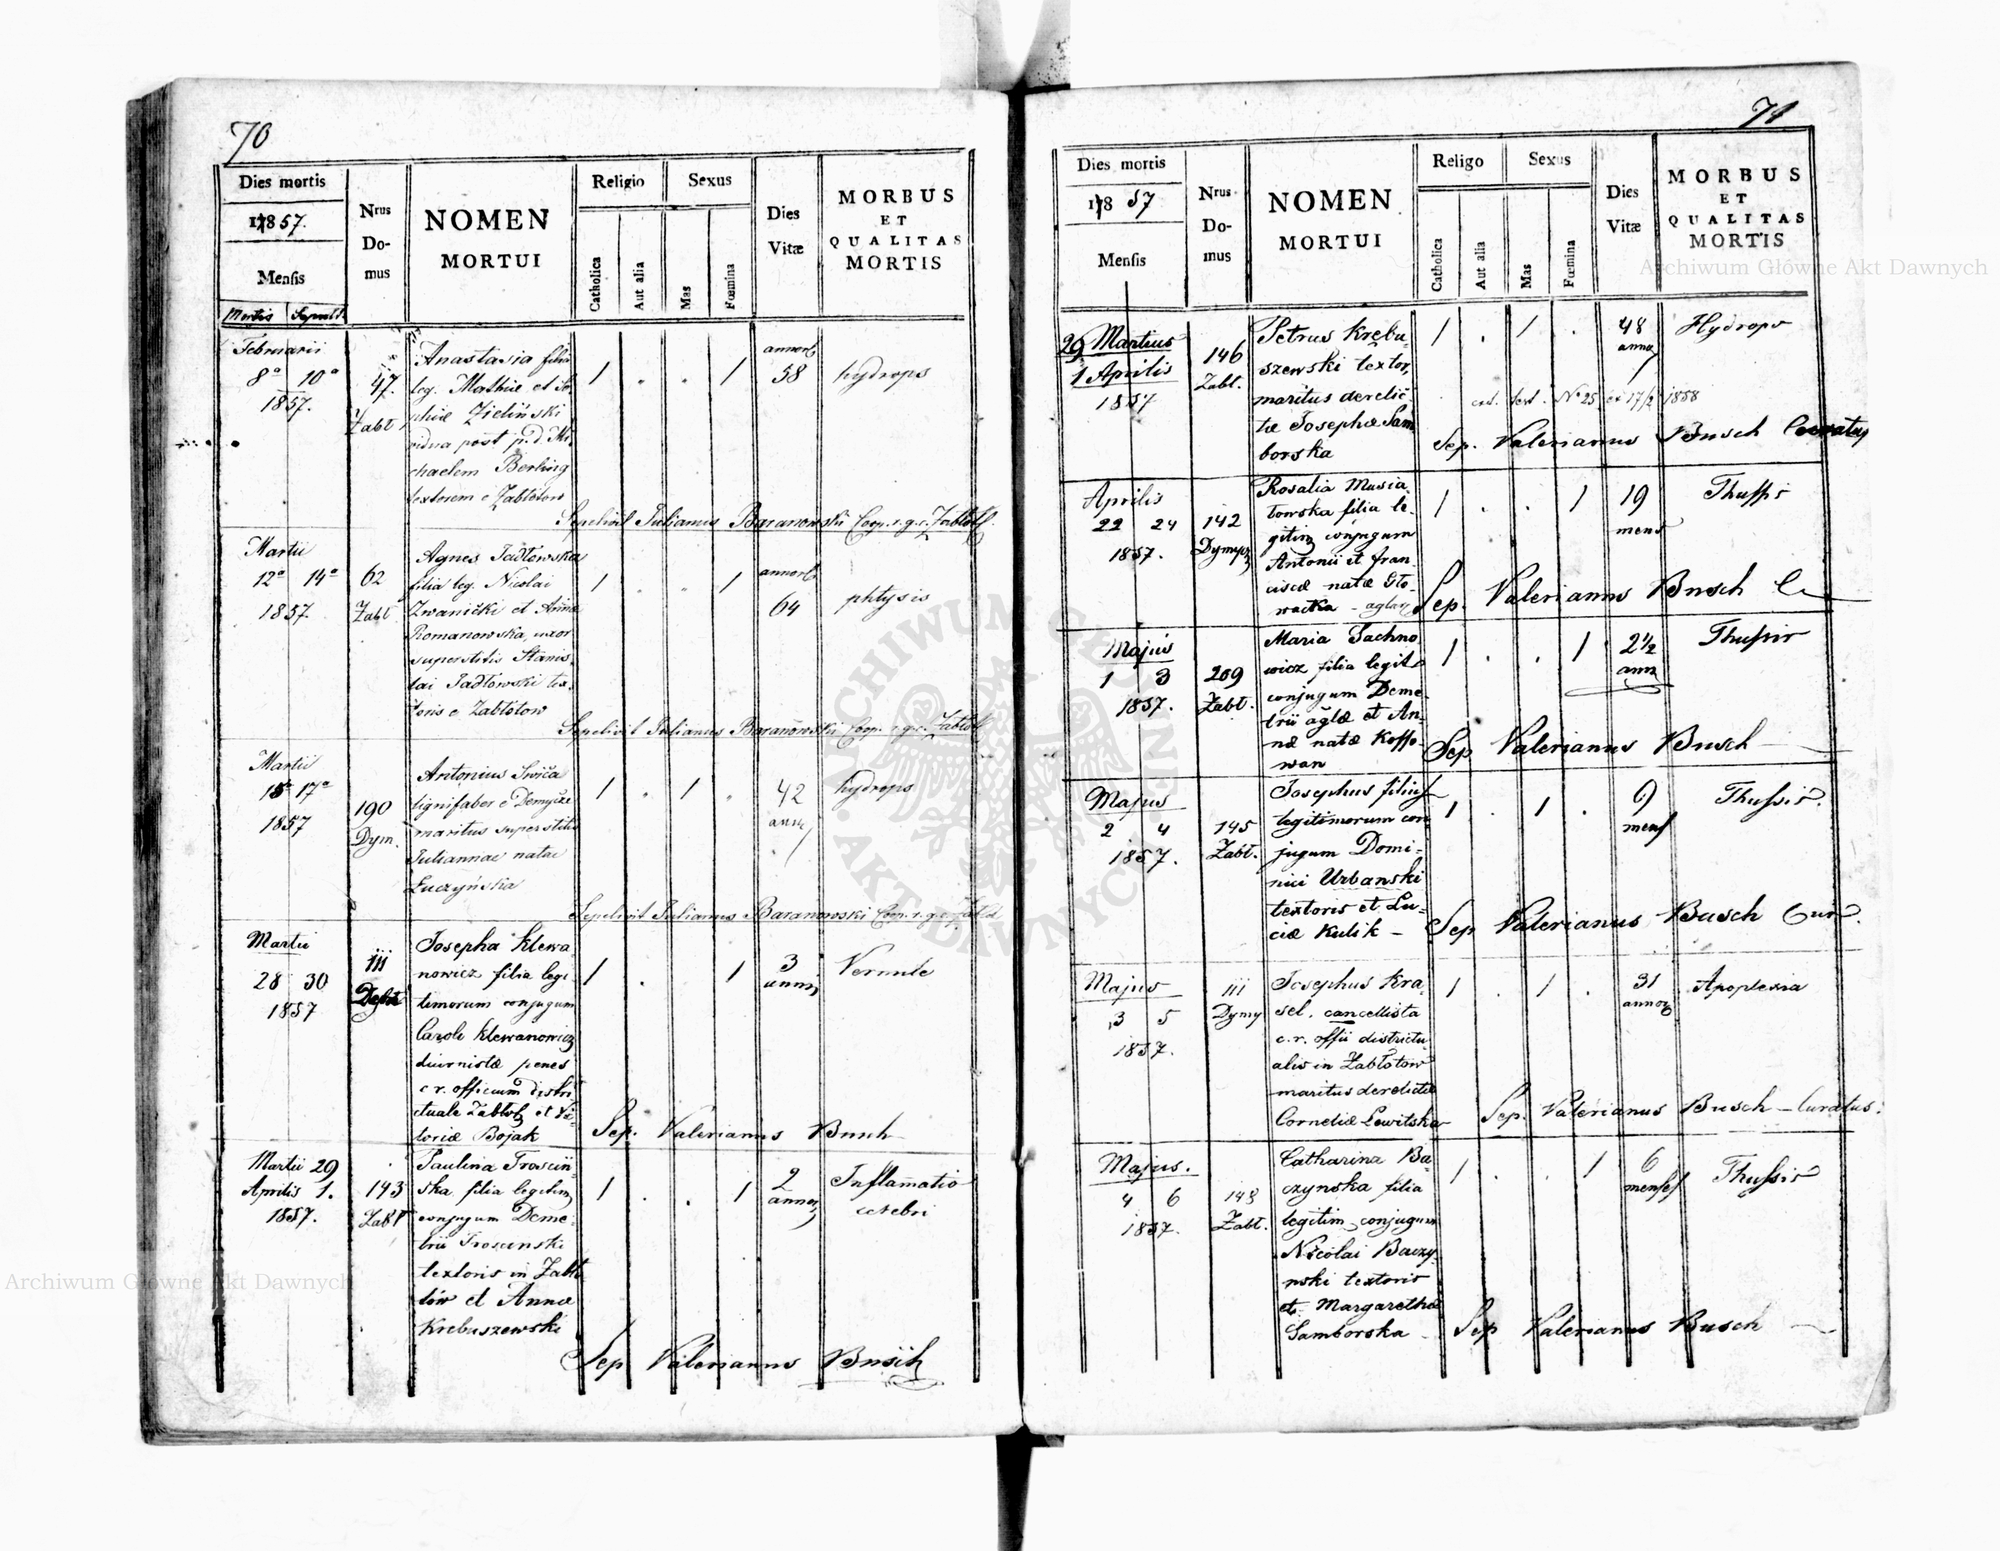 70
Dies mortis
1857.
Mensis
Mortis Sepult.
Nrus
Do-
mus
NOMEN
MORTUI
Religio
Catholica
Aut alia
Sexus
Mas
Fœmina
Dies
Vitæ
MORBUS
ET
QUALITAS
MORTIS
Februarii
8ª 10ª
1857.
47.
Zabł
Anastasia filia
leg. Mathiæ et So
phiæ Zieliński
vidua post p. d. Mi
chaelem Berling
textorem e Zabłotow
1 " " 1
annor
58
hydrops
Sepelivit Julianus Baranowski Coop. r. g. c. Zabłot.
Martii
12ª 14ª
1857.
62
Zabł
Agnes Jadłowska
filia leg. Nicolai
Iwanicki et Annæ
Romanowska, uxor
superstitis Stanis
lai Jadłowski tex.
toris e Zabłotow
1 " " 1
annor
64
phtysis
Sepelivit Julianus Baranowski Coop. r. g. c. Zabłot
Martii
15ª 17ª
1857
190
Dym.
Antonius
lignifaber e Demycze
maritus superstitis
Juliannae natae
Łuczyńska
1 " 1 "
42
ann
hydrops
Sepelivit Julianus Baranowski Coop. r. g. c. Zabł
Martii
28 30
1857
111
Josepha Klewa
nowicz filia legi
timorum conjugum
Caroli Klewanowicz
diurnistæ penes
c. r. officium distri
ctuale Zabłot et Vi
toriæ Bojak
1 . . 1
3
annor
Sep. Valerianus Busch
Martii 29
Aprilis 1.
1857.
143
Zabł
Paulina Troscin
ska filia legitim
conjugum Deme
trii Troscinski
textoris in Zabło
tów et Annæ
Krebuszewski
1 . . 1
2
annor
Inflamatio
cerebri
Sep Valerianus Busch
71
Dies mortis
1857
Mensis
Nrus
Do-
mus
NOMEN
MORTUI
Religo
Catholica
Aut alia
Sexus
Mas
Fœmina
Dies
Vitæ
MORBUS
ET
QUALITAS
MORTIS
29 Martius
1 Aprilis
1857
146
Zabł.
Petrus Krebu
szewski textor,
maritus derelic
tæ Josephæ Sam
borska
1 . 1 .
48
anno
Hydrops
ext. test. Nº 25 17/2 1858
Sep. Valerianus Busch Curatus
Aprilis
22 24
1857.
142
Dymycz
Rosalia Musia
towska filia le.
gitim conjugum
Antonii et Fran
ciscæ natæ Gło
wacka
1 . . 1
19
mens
Thussis
Sep. Valerianus Busch C
Majus
1 3
1857.
209
Zabł.
Maria Jachno
wicz filia legit
conjugum Deme
trii et An
næ natæ Koffo
wan
1 . . 1
2 1/2
ann
Thussis
Sep Valerianus Busch
Majus
2 4
1857.
145
Zabł.
Josephus filius
legitimorum con
jugum Domi-
nici Urbanski
textoris et Lu-
ciæ Kulik -
1 . 1 .
9
mens
Thussis.
Sep Valerianus Busch Cur.
Majus
3 5
1857.
111
Dymy
Josephus Kra
sel, cancellista
c. r. offii districtu
alis in Zabłotow
maritus derelictæ
Corneliæ Lewitska
1 . 1 .
31
annor
Apoplexia
Sep. Valerianus Busch - Curatus.
Majus.
4 6
1857.
148
Zabł.
Catharina Ba
czynska filia
legitim conjugum
Nicolai Baczy
nski textoris
et Margarethæ
Samborska -
1 . . 1
6
menses
Thussis
Sep Valerianus Busch
Archiwum Główne Akt Dawnych
Archiwum Główne Akt Dawnych
ARCHIWUM GŁÓWNE AKT DAWNYCH